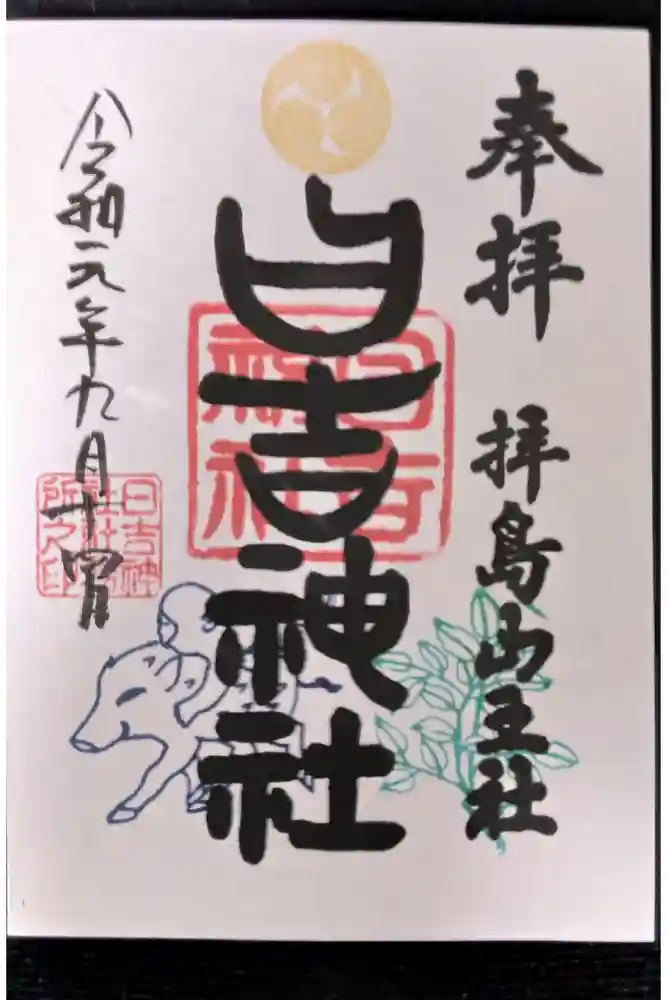 奉拝 拝島山王社
日吉神社
日吉神社
令和元年九月十四日
日吉神
社社務
所之印